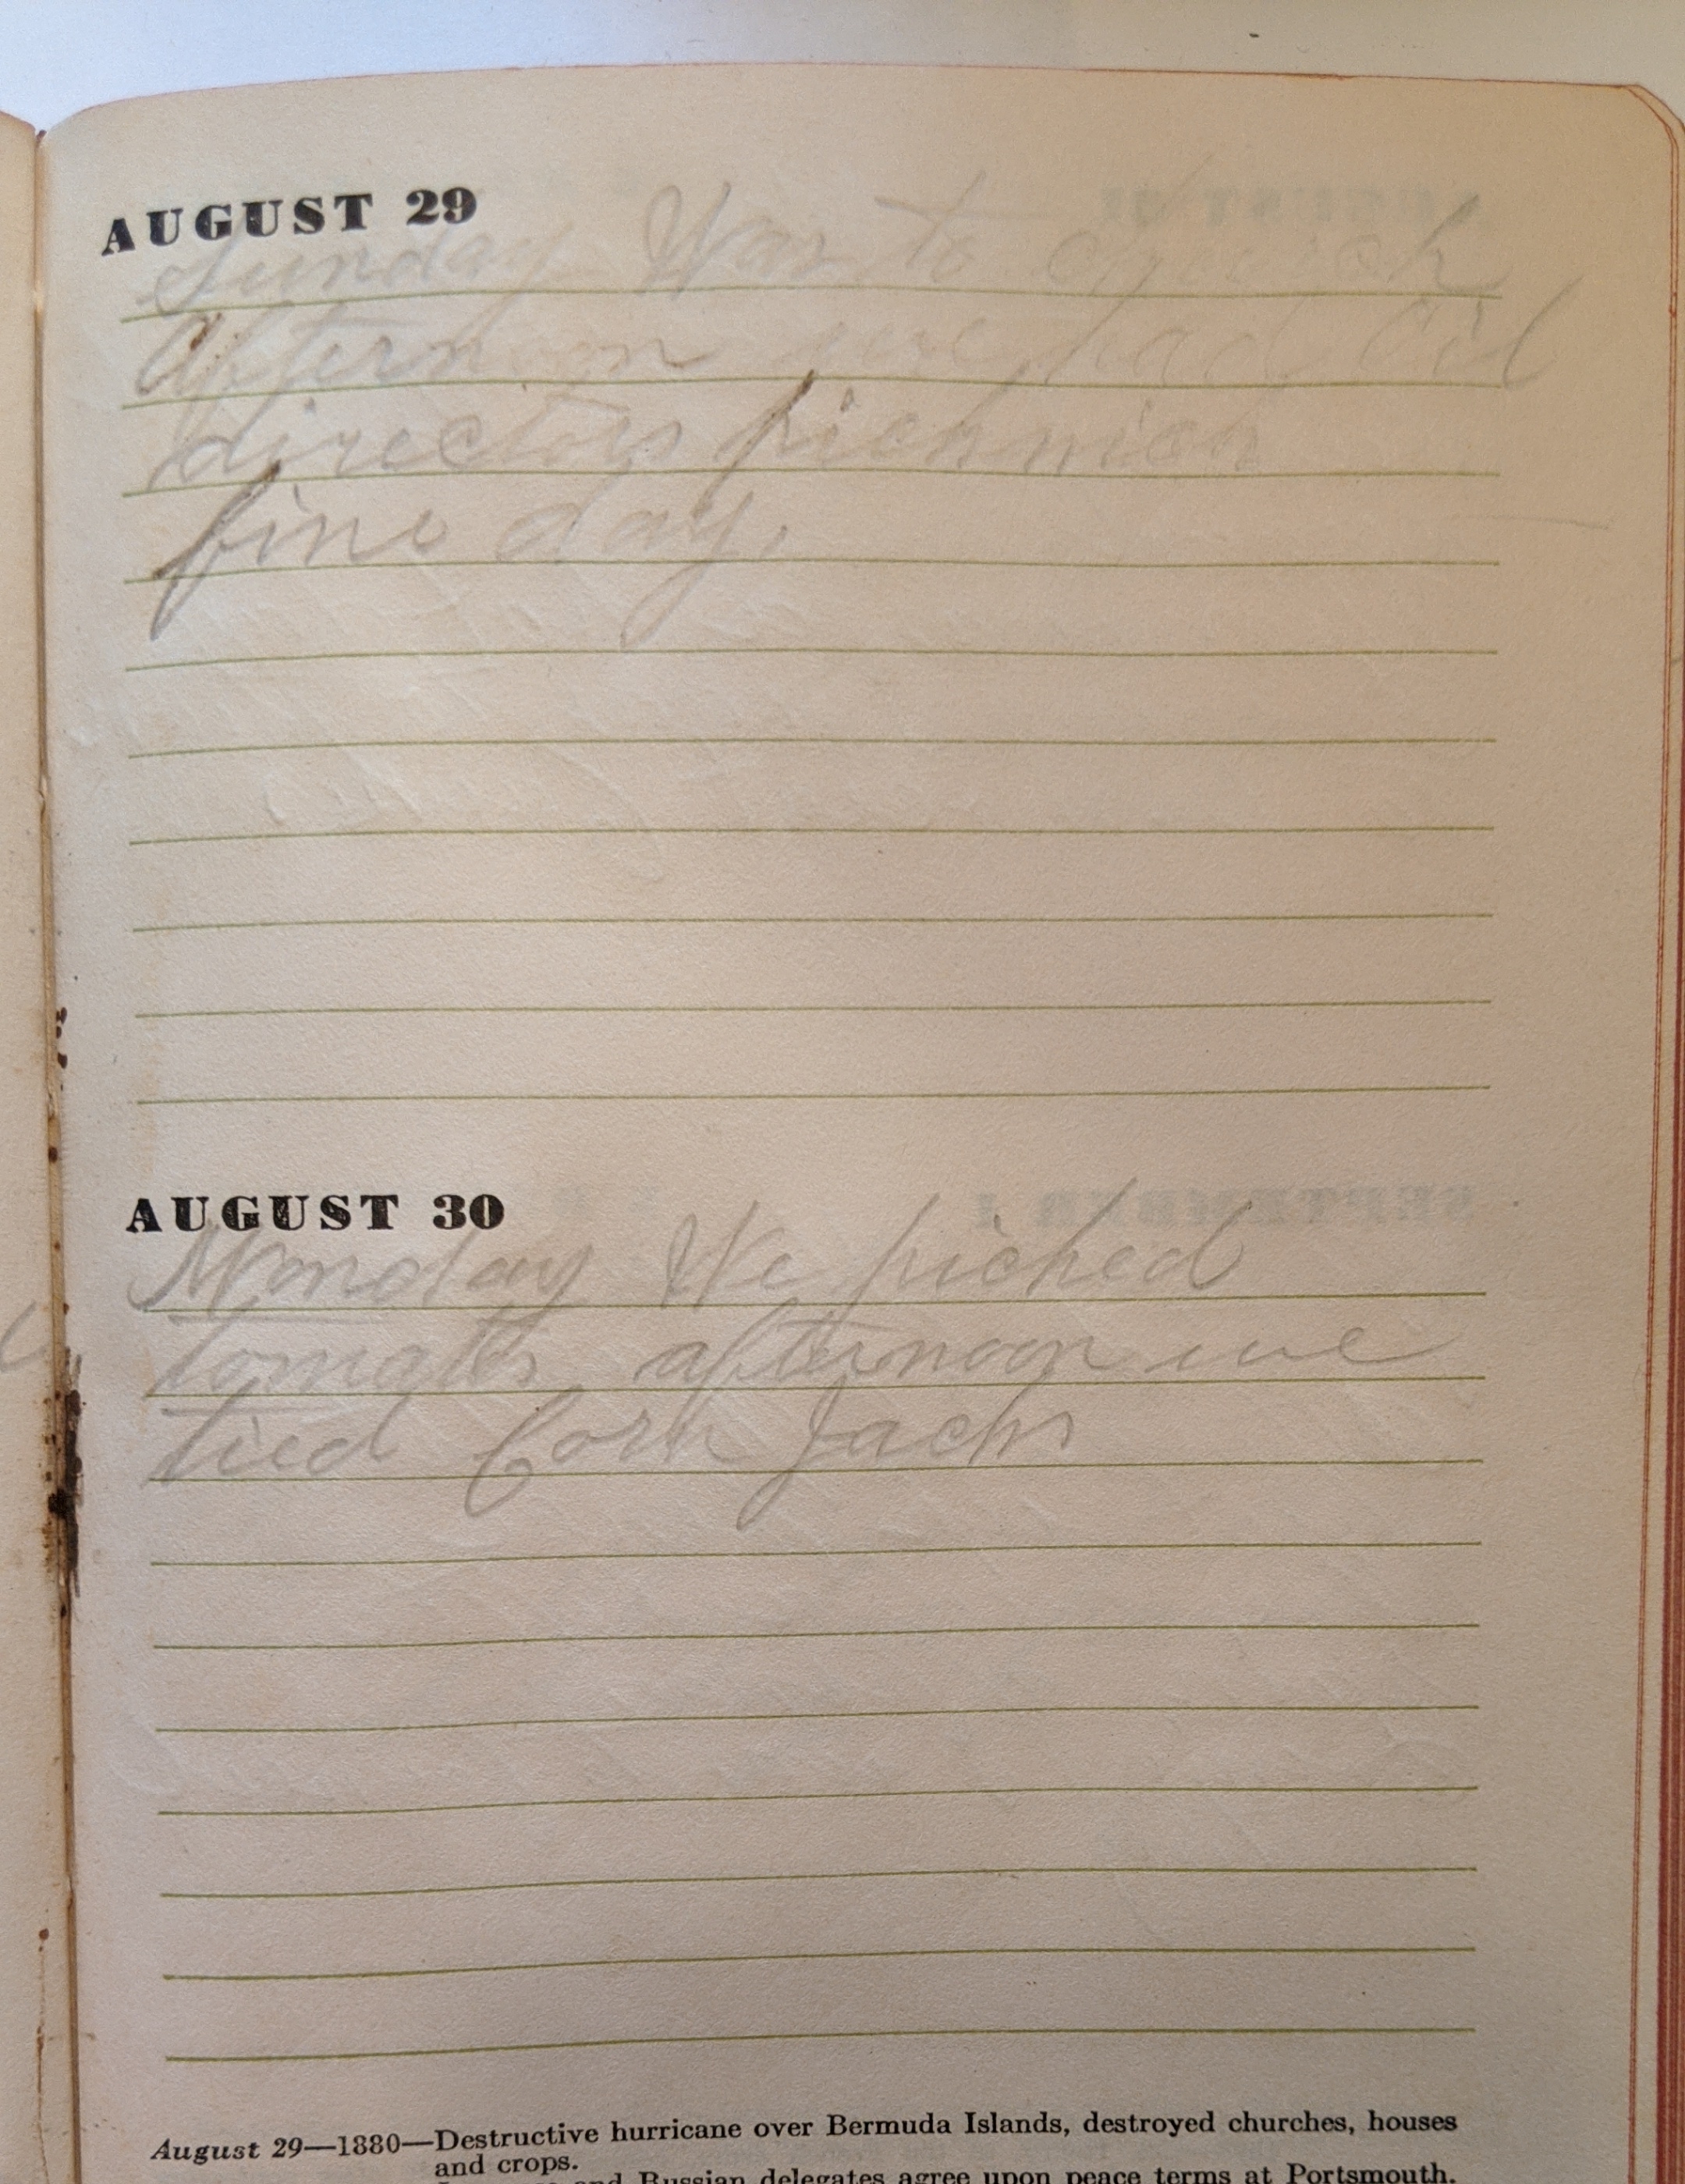 AUGUST 29
Sunday Was to church
Afternoon we had Oil
directors picknick
fine day.
AUGUST 30
Monday We picked
tomatos afternoon we
tied Corn Jacks
August 29—1880—Destructive hurricane over Bermuda Islands, destroyed churches, houses
and crops.
and Russian delegates agree upon peace terms at Portsmouth.